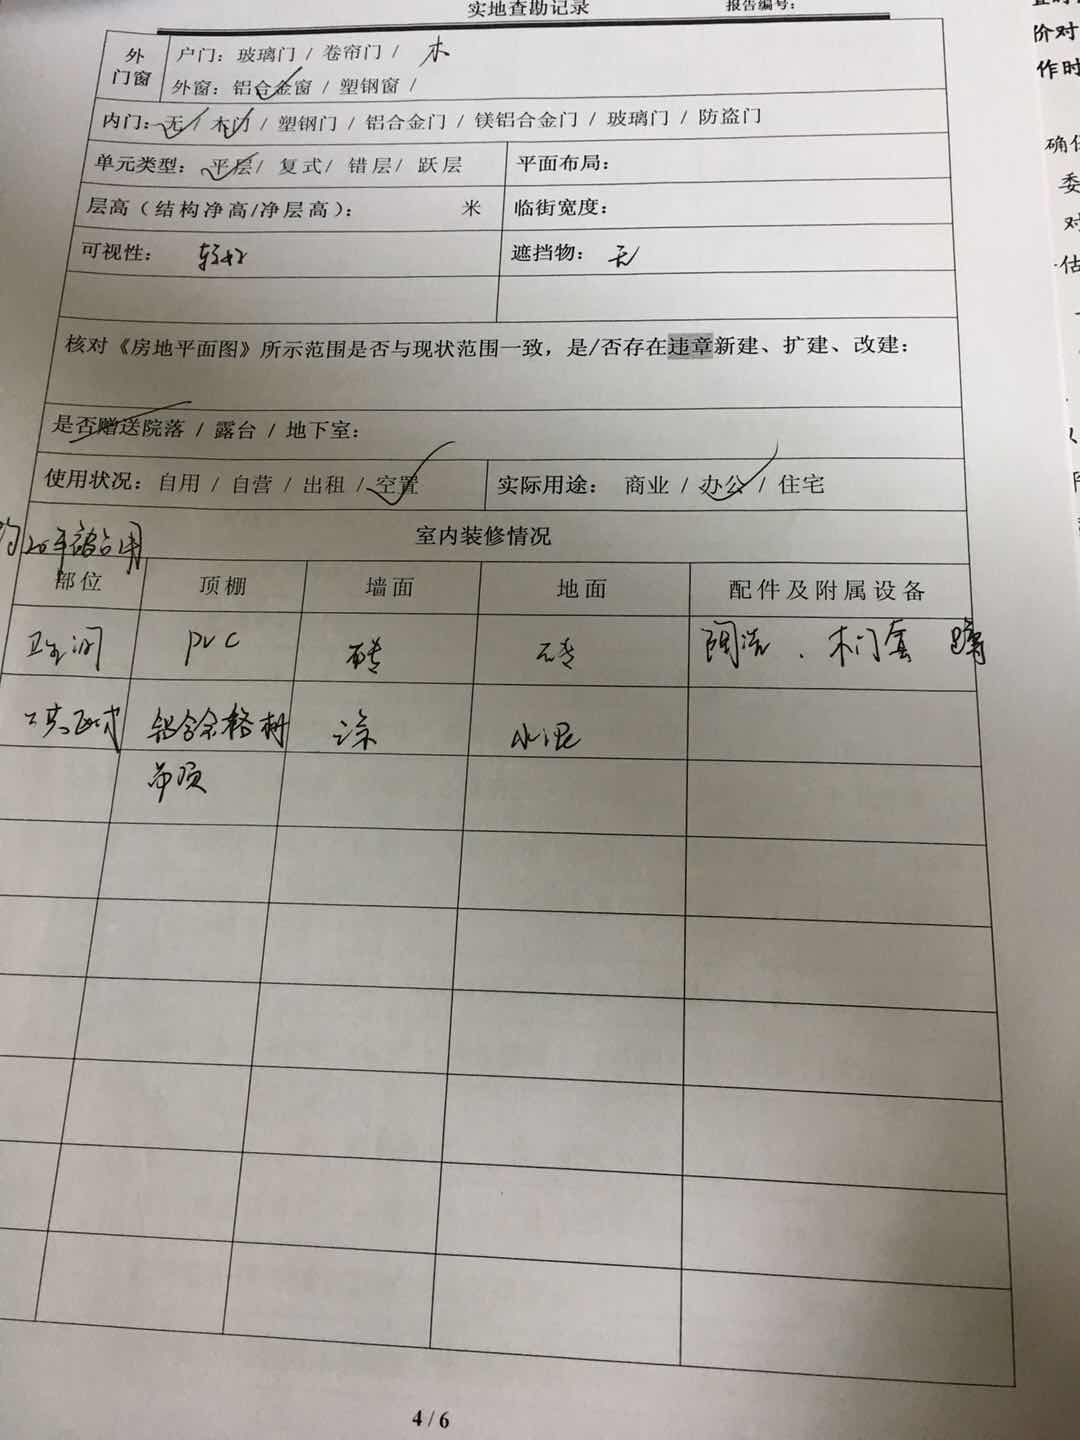 实地查勘记录 报告编号:
外门窗 户门: 玻璃门 / 卷帘门 / 木
外窗: 铝合金窗 / 塑钢窗 /
内门: 无 / 木门 / 塑钢门 / 铝合金门 / 镁铝合金门 / 玻璃门 / 防盗门
单元类型: 平层/ 复式/ 错层/ 跃层 平面布局:
层高(结构净高/净层高): 米 临街宽度:
可视性: 较好 遮挡物: 无
核对《房地平面图》所示范围是否与现状范围一致,是/否存在违章新建、扩建、改建:
是否赠送院落 / 露台 / 地下室:
使用状况: 自用 / 自营 / 出租 / 空置 实际用途: 商业 / 办公 / 住宅
室内装修情况
部位 顶棚 墙面 地面 配件及附属设备
卫生间 PVC 砖 砖 陶洁、木门套 蹲
公共区域 铝合金格栅 涂 水泥
吊顶
4 / 6
价对
作时
确任
委
对
估